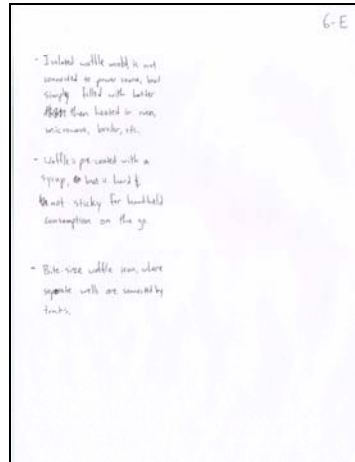 6-E
- Isolated waffle mold, is not
connected to power source, but
simply filled with batter
then heated in oven,
microwave, broiler, etc.
- Waffles pre-coated with a
syrup, but is hard &
not sticky for handheld
consumption on the go.
- Bite-size waffle iron, where
separate wells are connected by